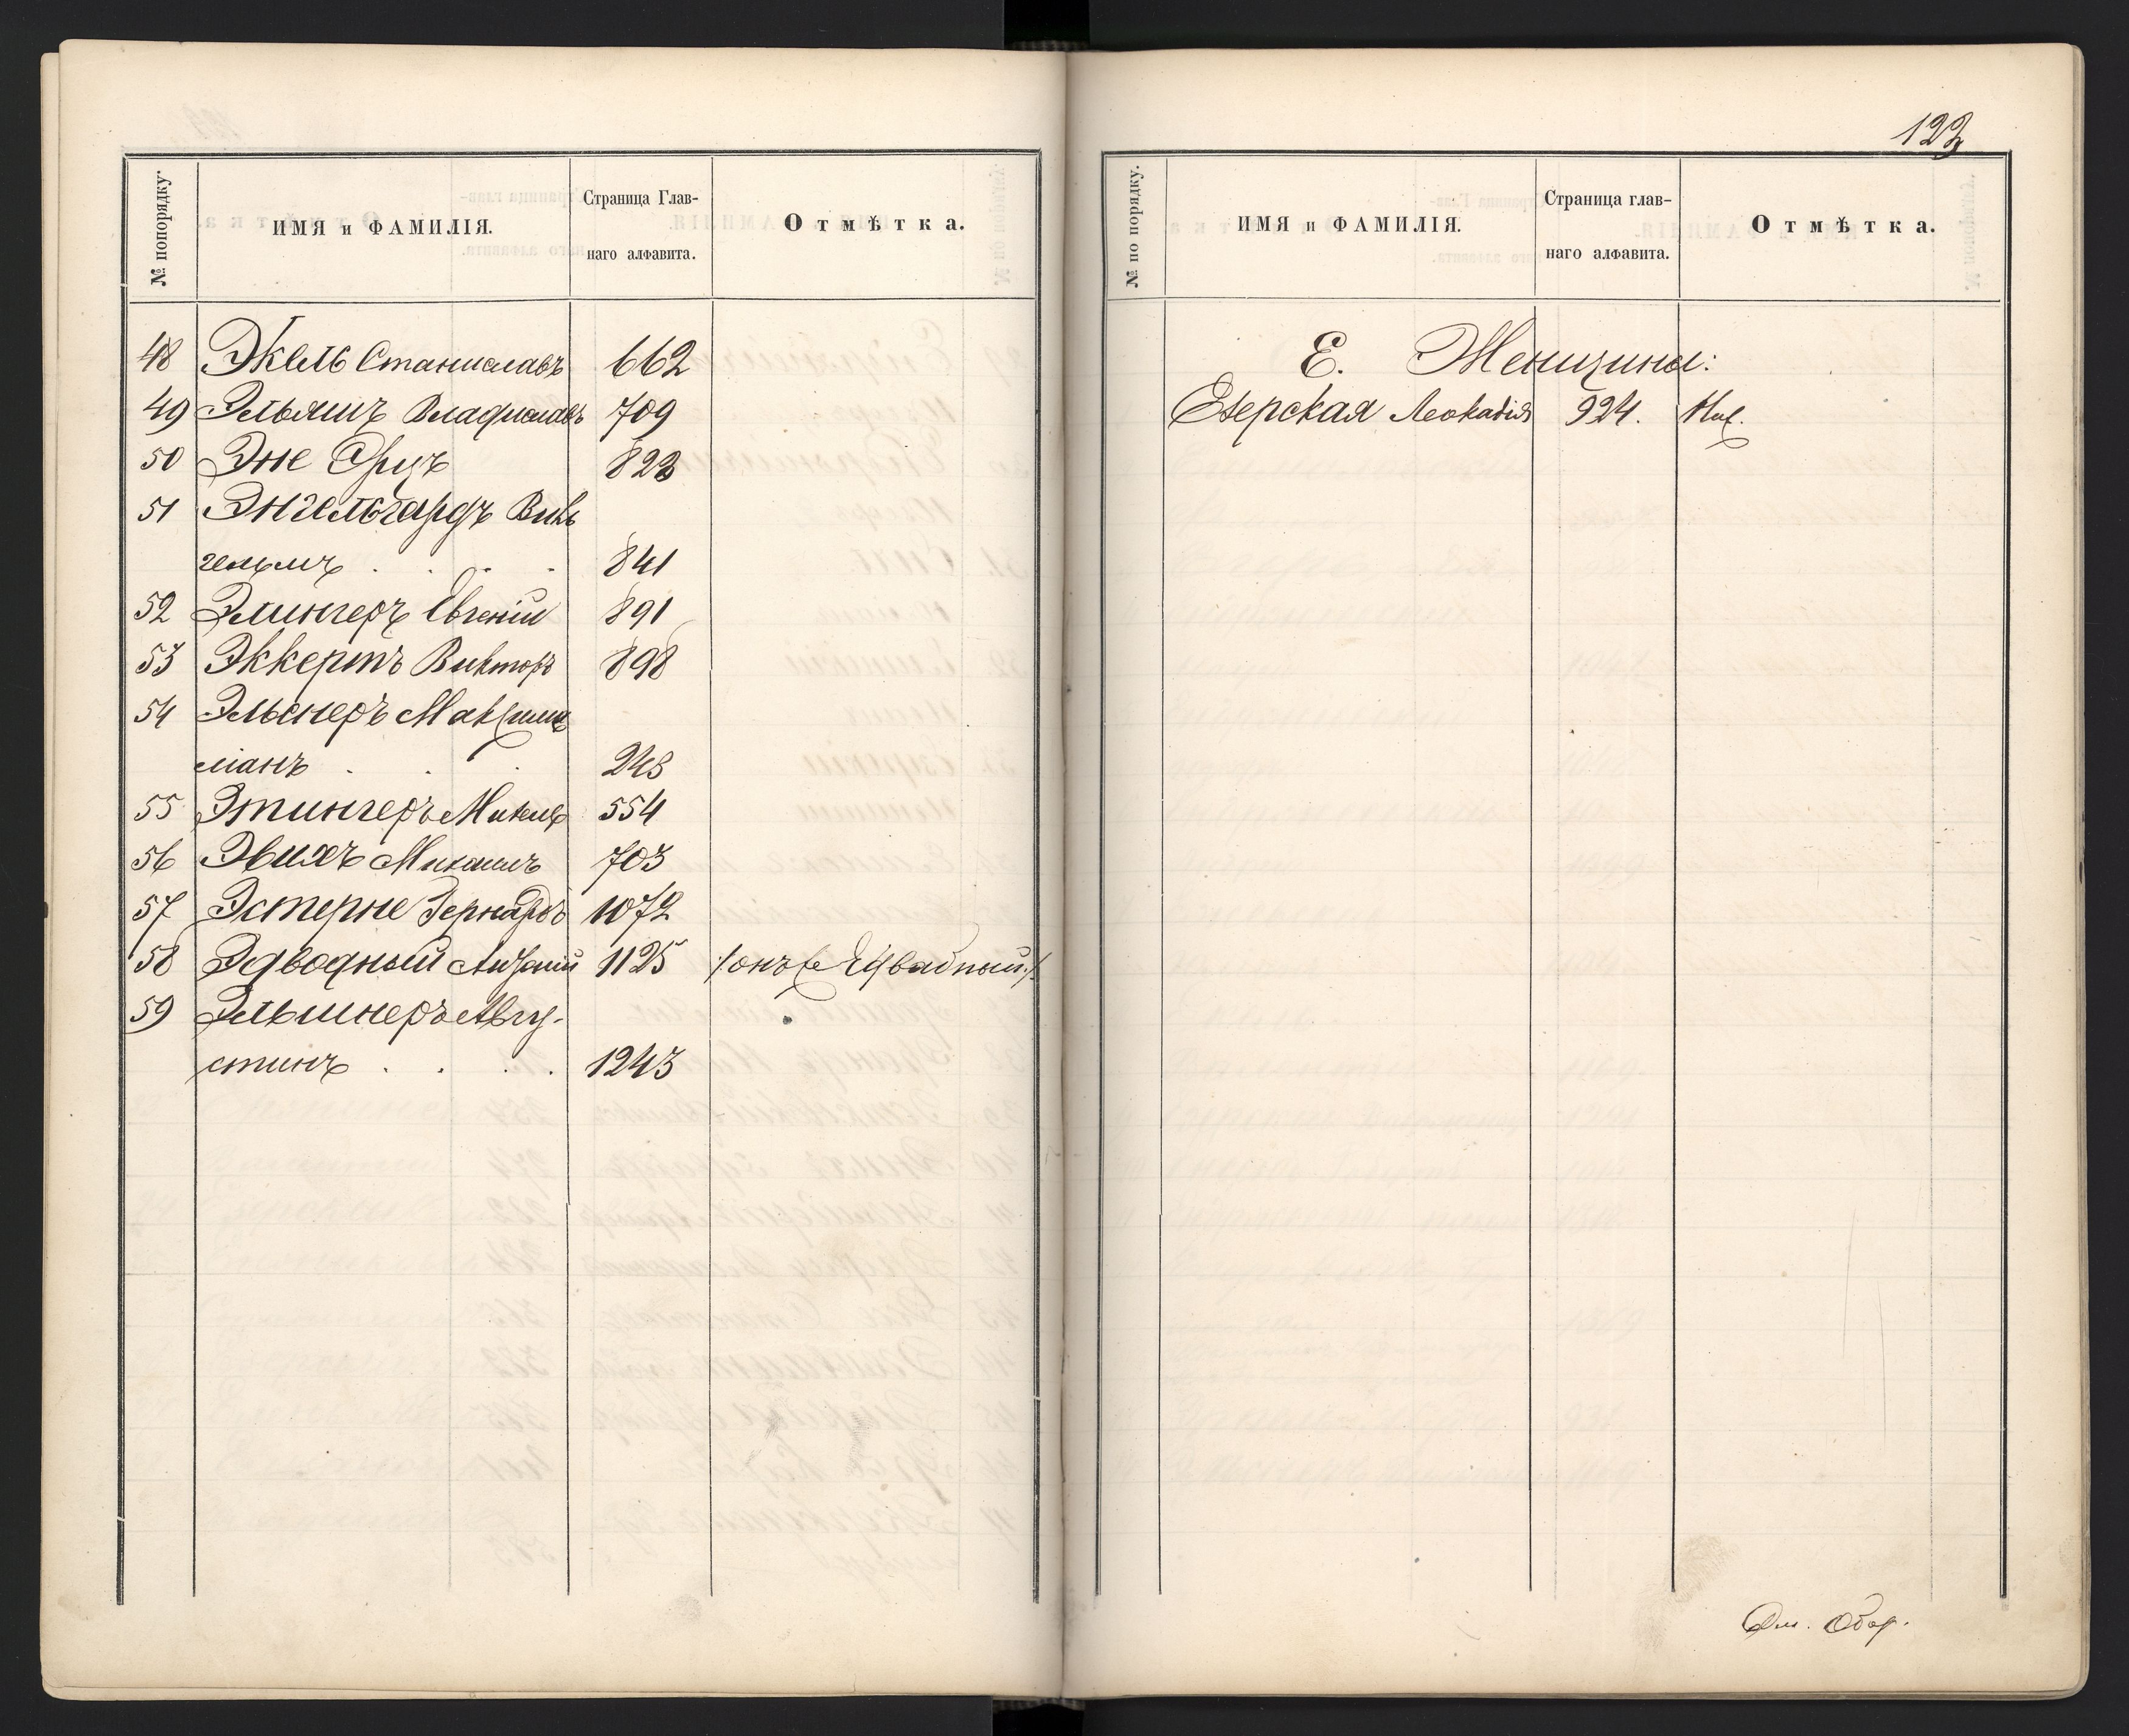 № попорядку.
ИМЯ и ФАМИЛІЯ.
Страница Глав-
наго алфавита.
Отмѣтка.
48 Экель Станиславъ 662
49 Эльяшъ Владиславъ 709
50 Эне Фрицъ 823
51 Энгельгардъ Виль
гельмъ . . . . 841
52 Элингеръ Евгеній 891
53 Эккертъ Викторъ 898
54 Эльснеръ Максими
ліанъ . . . 248
55 Этингеръ 554
56 Михаилъ 703
57 Эстерне 1072
58 Эдводный Антоній 1125 /:онъ же Едвабный:/
59 Эльшнеръ Авгу-
стинъ . . . . 1243
123
№ по порядку.
ИМЯ и ФАМИЛІЯ.
Страница глав-
наго алфавита.
Отмѣтка.
Е. Женщины:
Езерская Леокадія 924.
См. Обор.